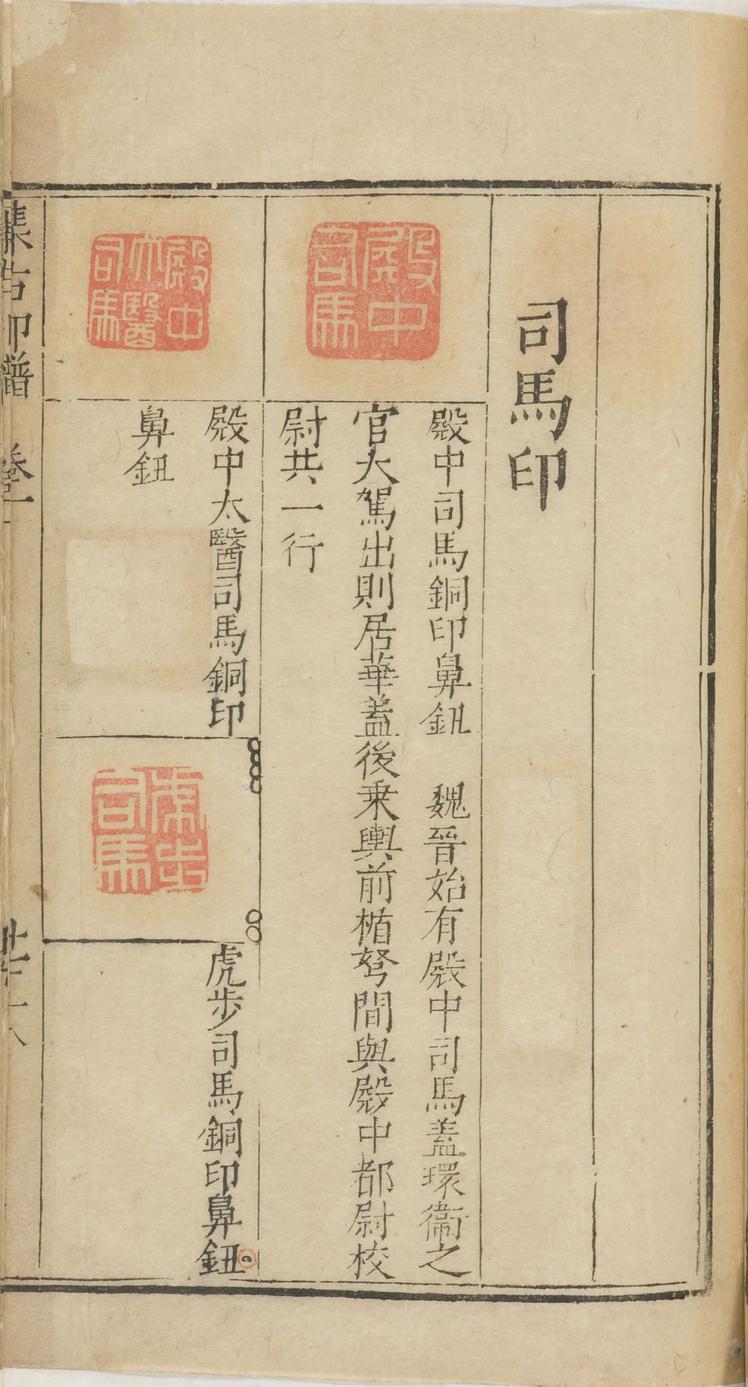 司馬印
殿中司馬
殿中司馬銅印鼻鈕　魏晉始有殿中司馬蓋環衞之
官大駕出則居華蓋後乗輿前楯弩間與殿中都尉校
尉共一行
殿中太醫司馬
殿中太醫司馬銅印
鼻鈕
虎步司馬
虎步司馬銅印鼻鈕
集古印譜